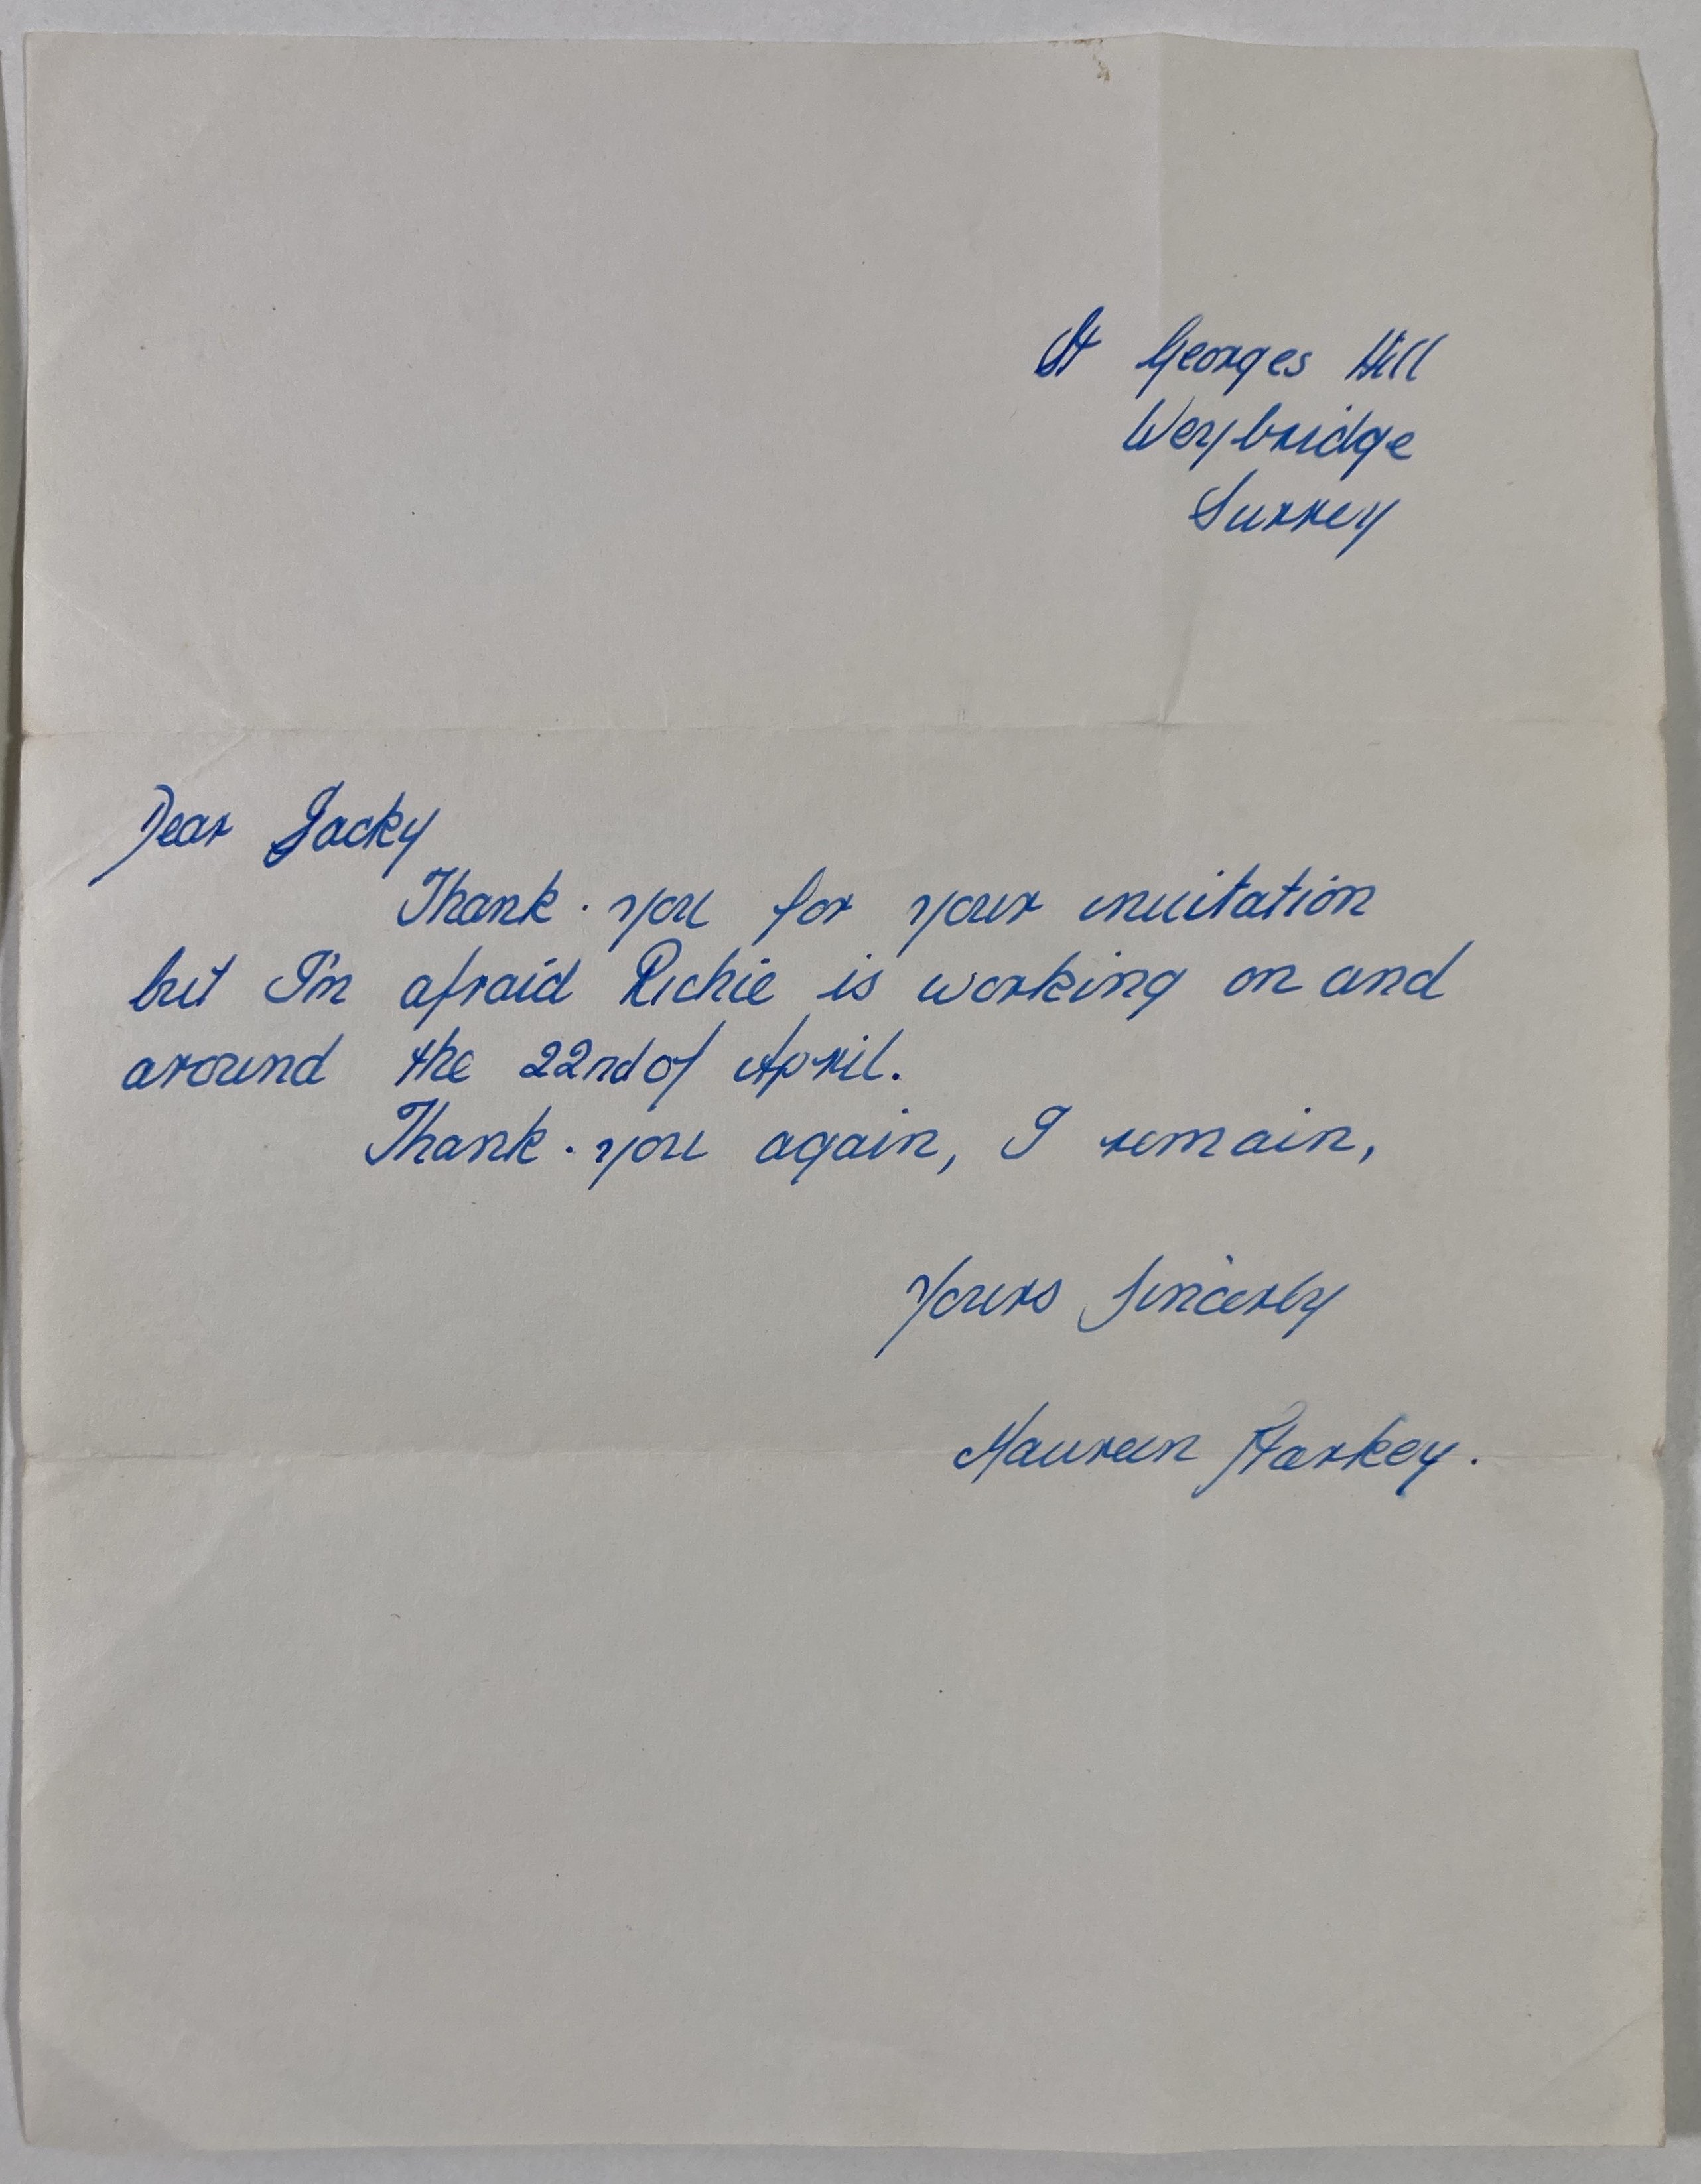 St Georges Hill
Weybridge
Surrey
Dear Jacky
Thank-you for your invitation
but I'm afraid Richie is working on and
around the 22nd of April.
Thank-you again, I remain,
Yours Sincerly
Maureen Starkey.